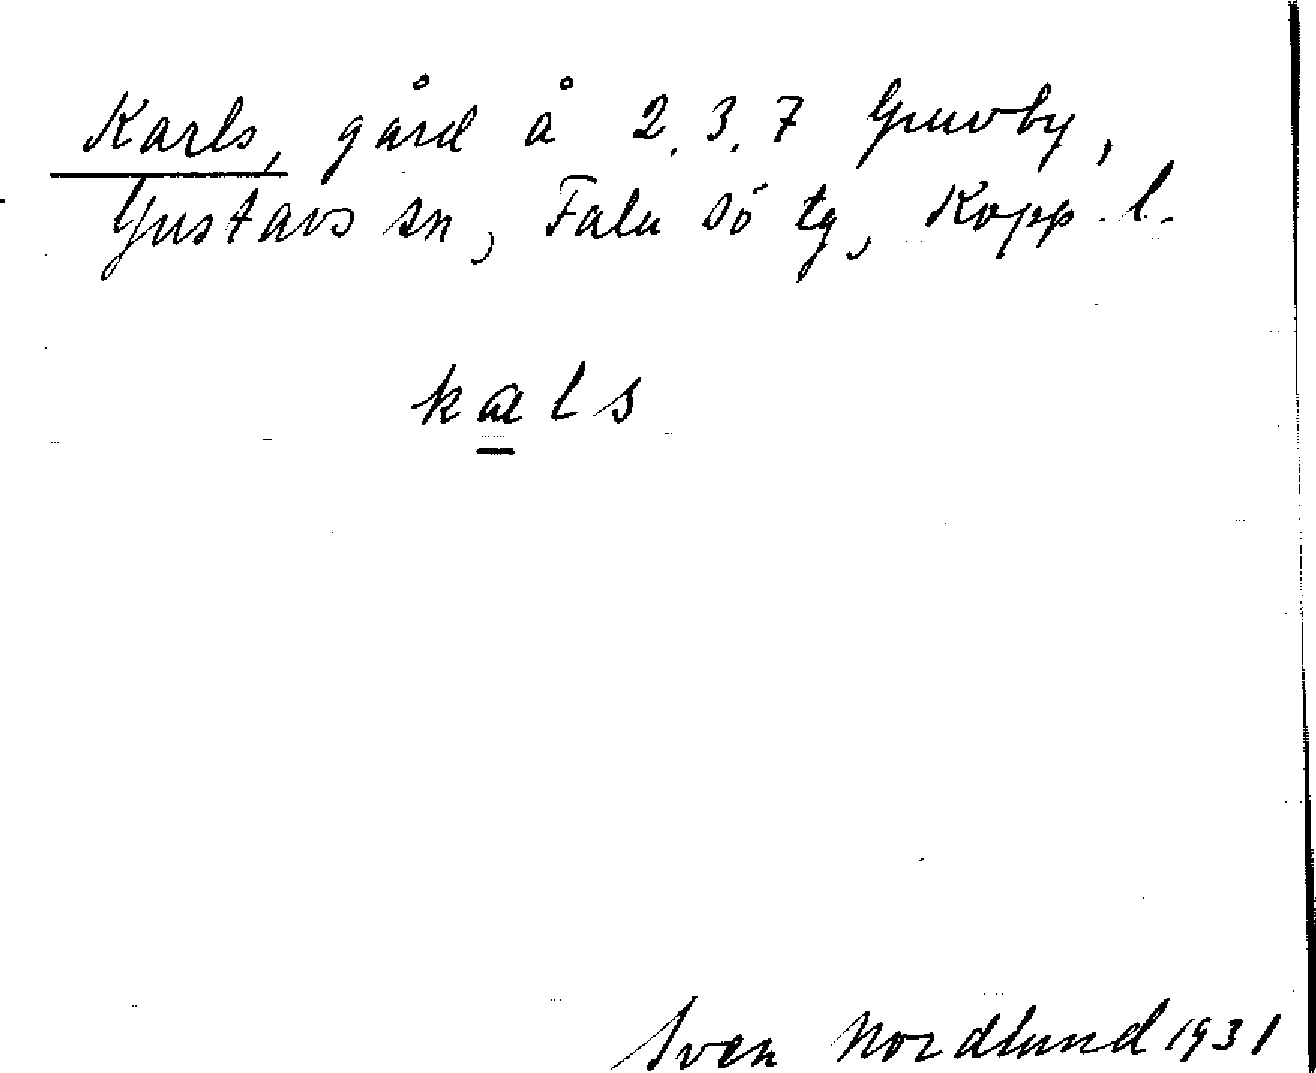 Karls, gård å 2, 3, 7 Gruvby,
Gustavs sn, Falu sö tg, Kopp. l.
kals
Sven Nordlund 1931